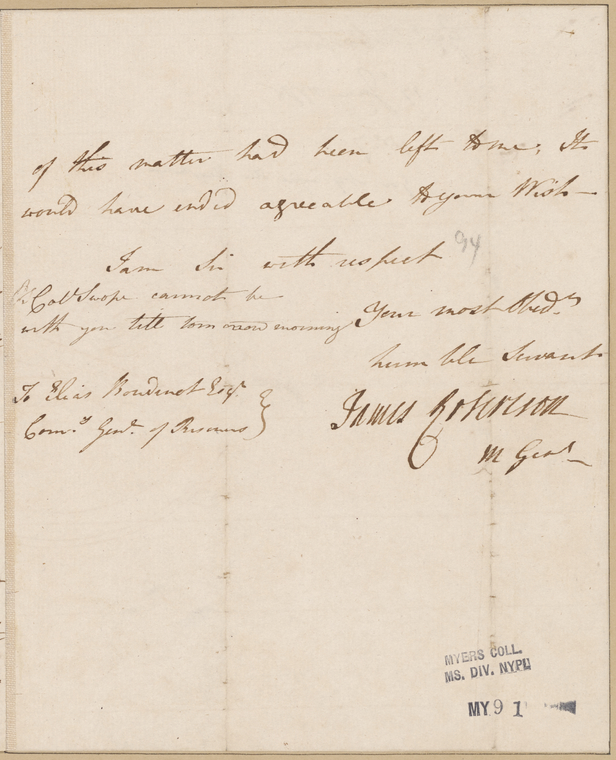 of this matter had been left to me, It
would have ended agreeable to your Wish—
94
I am Sir with respect
Col.l Swope cannot be
with you till tomorrow morning
Your most Obed.t
humble Servant
To Elias Boudinot Esq.r
Com.y Gen.l of Prisoners
James Robertson
M Gen.l
MYERS COLL.
MS. DIV. NYPL
MY 9 1